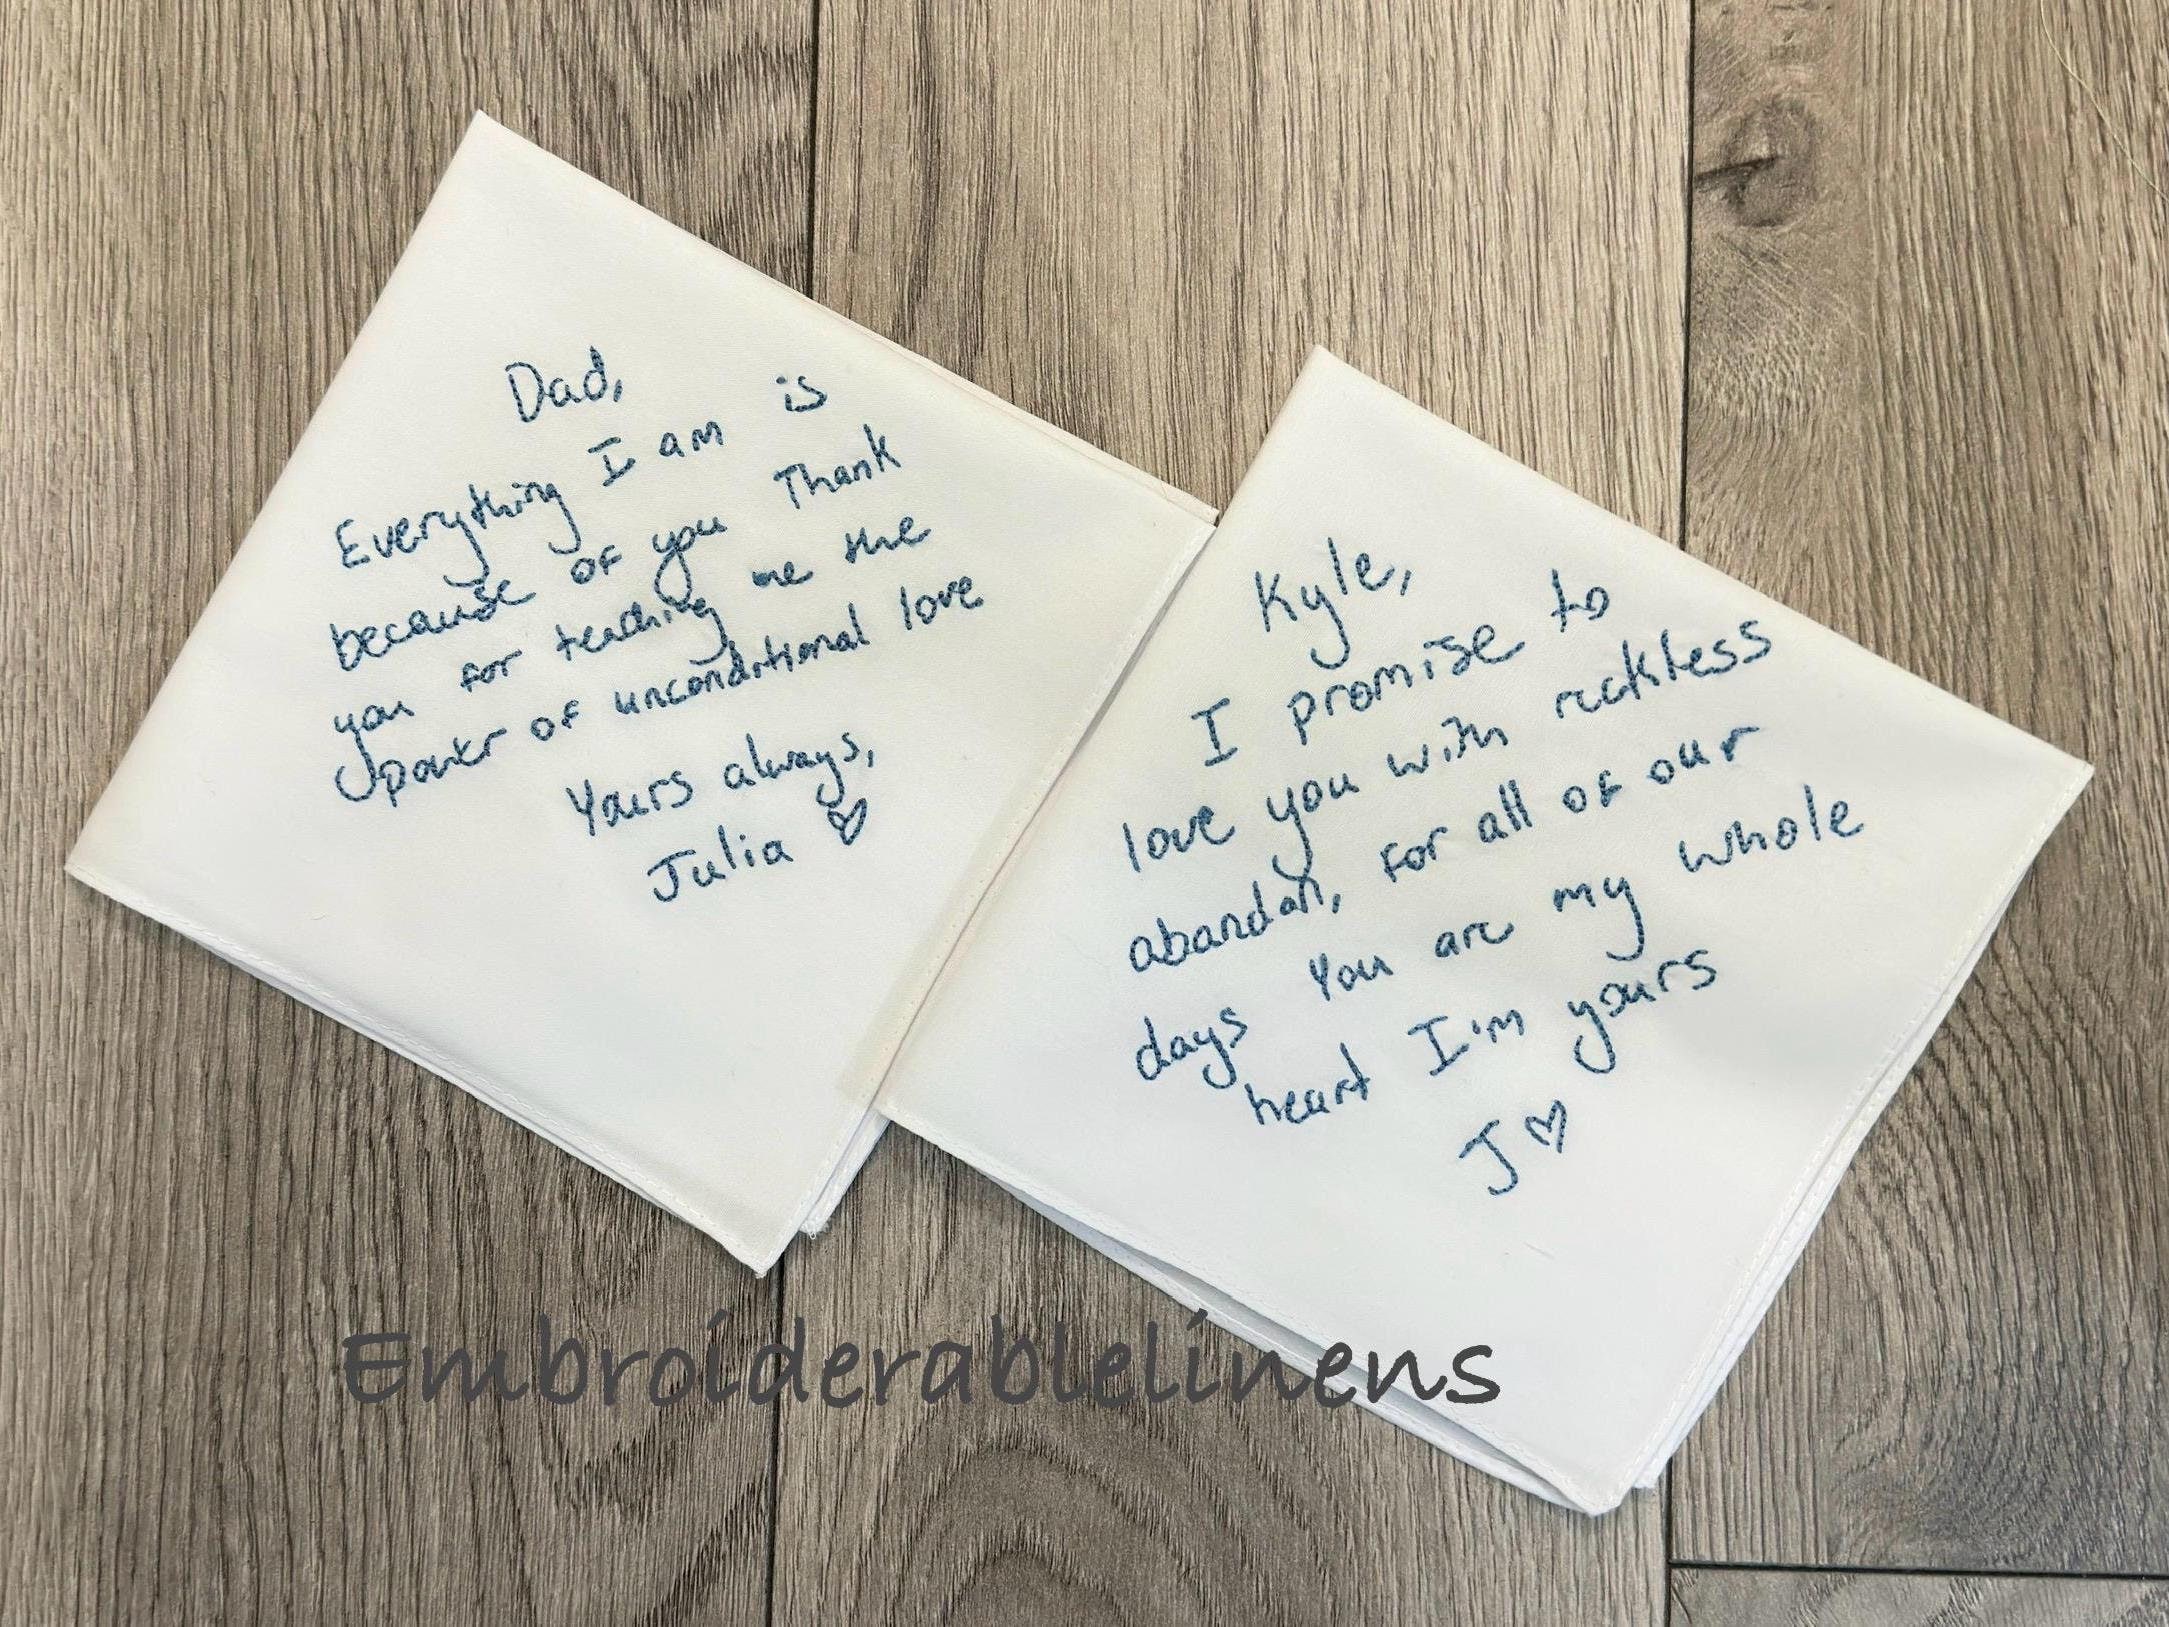 Dad,
Everything I am is
because of you Thank
you for teaching me the
power of unconditional love
Yours always,
Julia
Kyle,
I promise to
love you with reckless
abandon, for all of our
days You are my whole
heart I'm yours
J
Embroiderablelinens